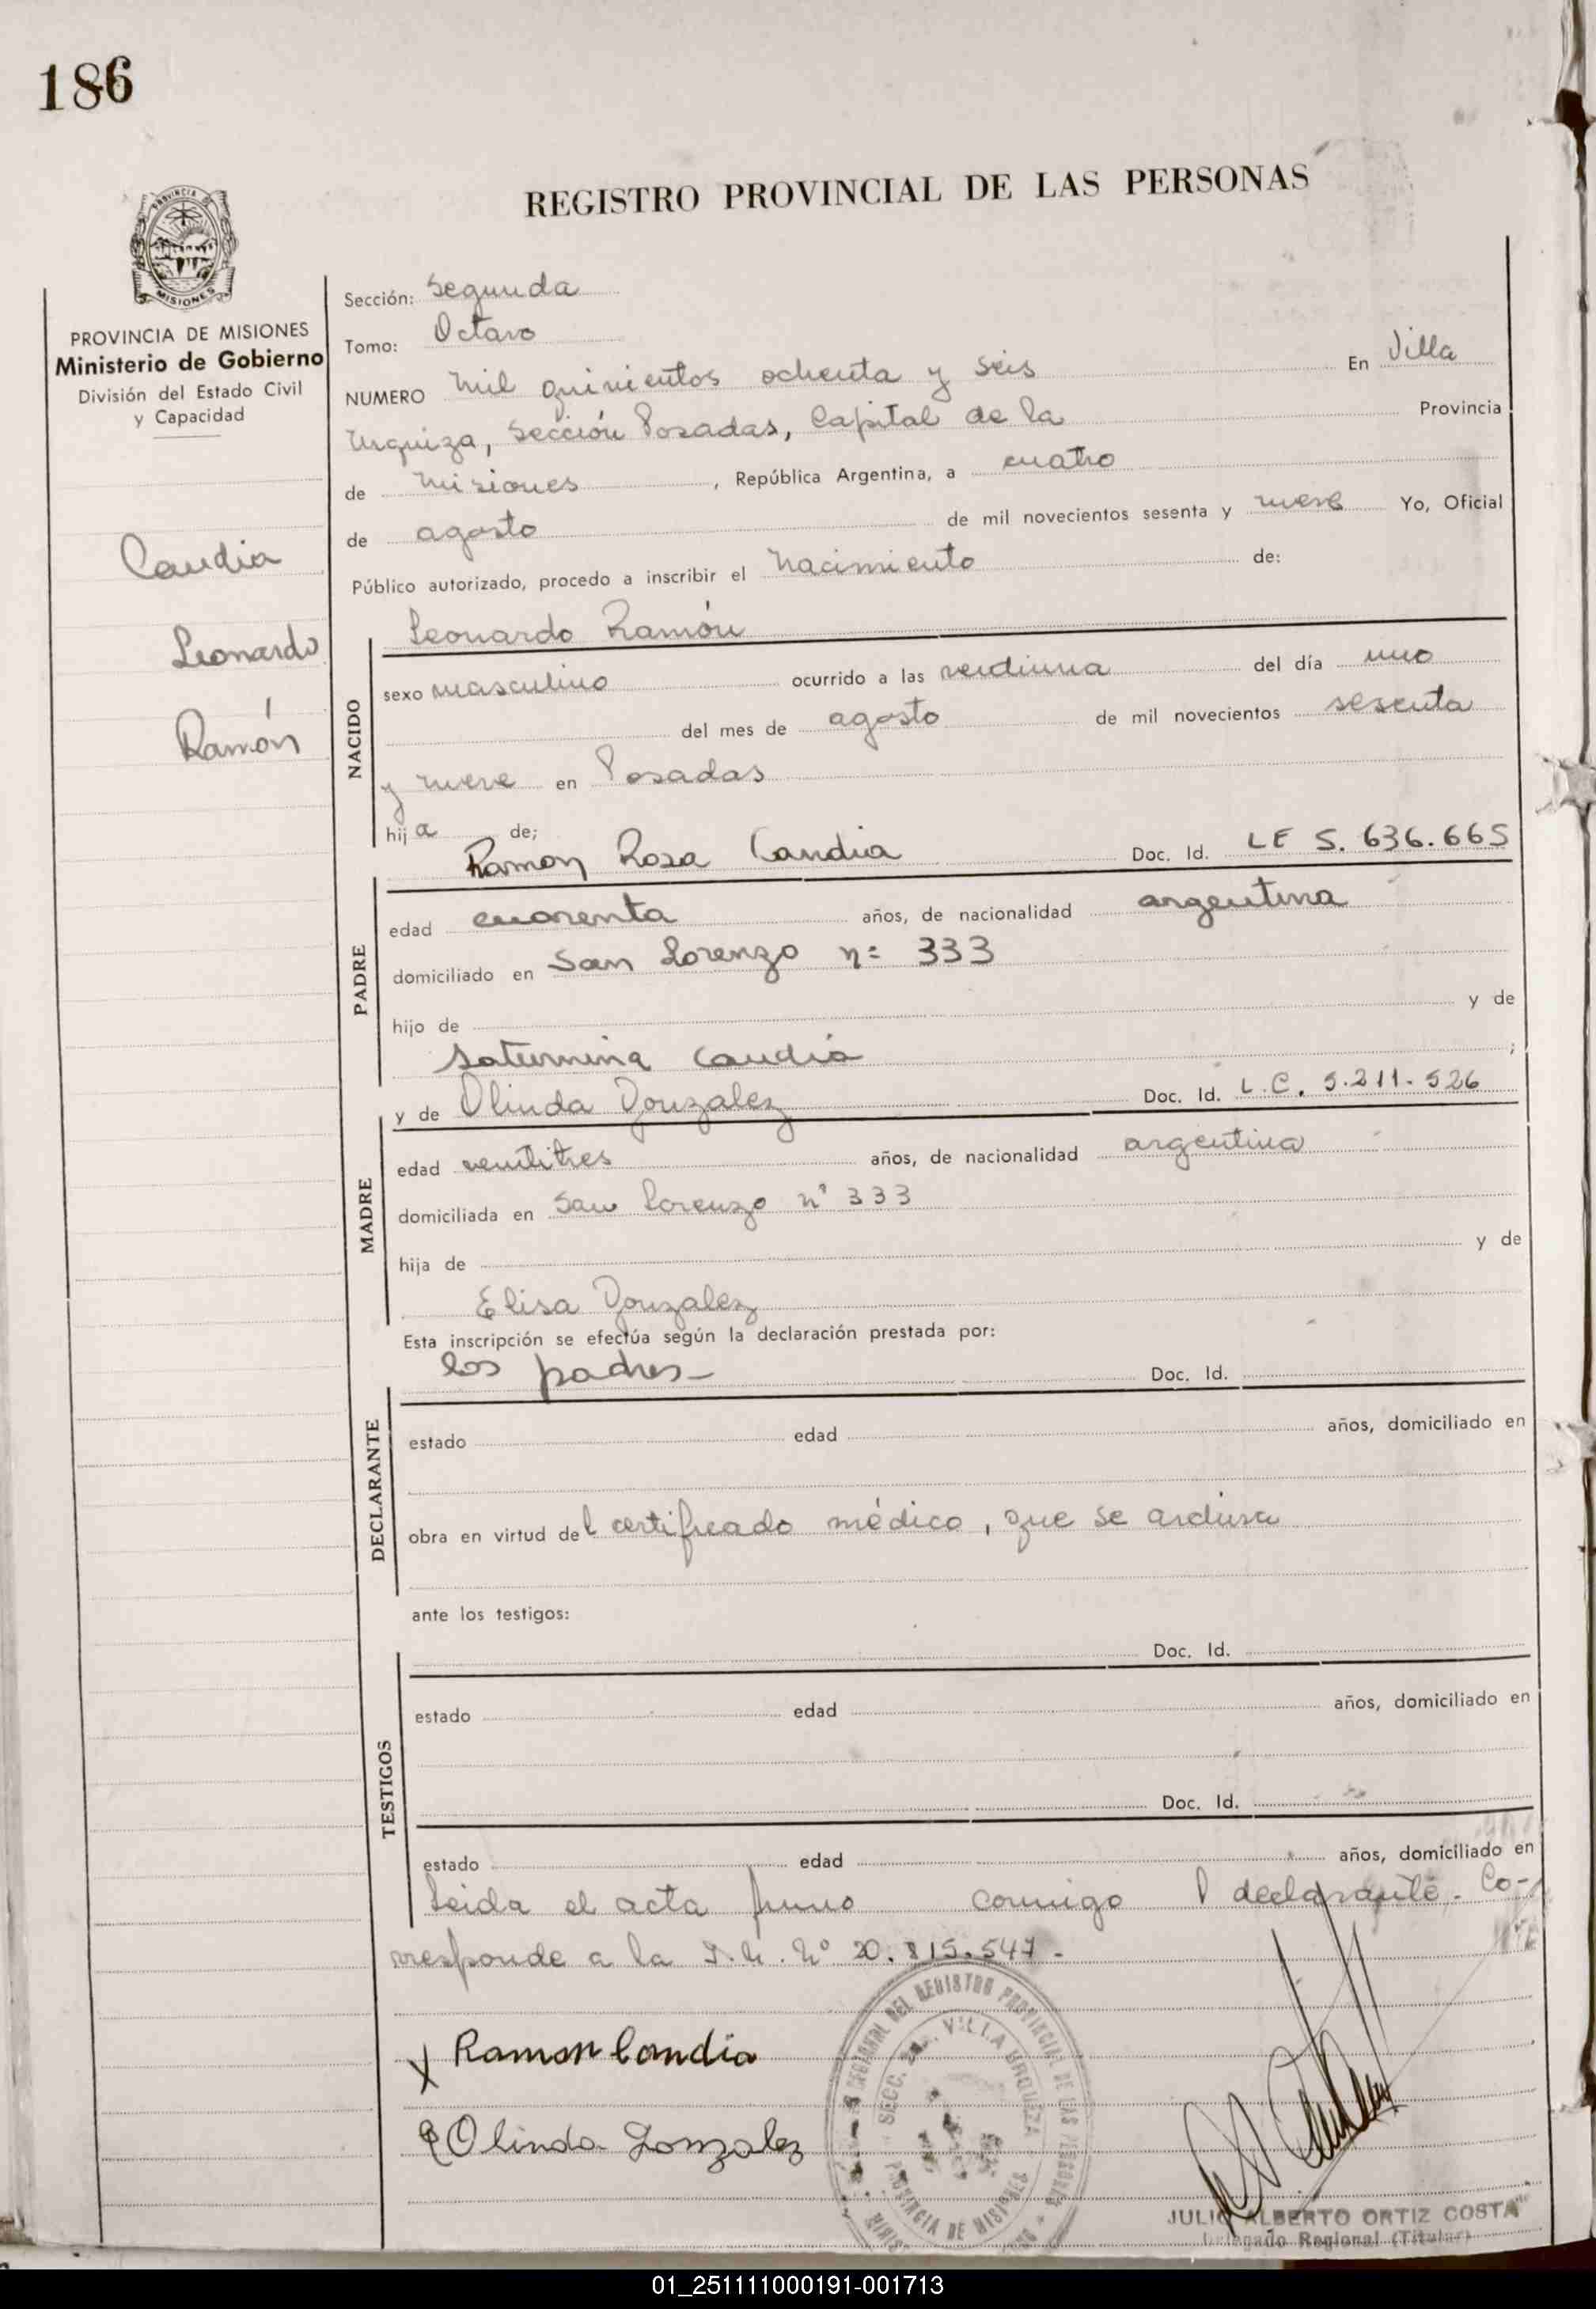 186
REGISTRO PROVINCIAL DE LAS PERSONAS
PROVINCIA
MISIONES
PROVINCIA DE MISIONES
Ministerio de Gobierno
División del Estado Civil
y Capacidad
Candia
Leonardo
Ramón
Sección: Segunda
Tomo: Octavo
NUMERO mil quinientos ochenta y seis En Villa
Urquiza, Sección Posadas, Capital de la Provincia
de Misiones, República Argentina, a cuatro
de agosto de mil novecientos sesenta y nueve Yo, Oficial
Público autorizado, procedo a inscribir el nacimiento de:
Leonardo Ramón
NACIDO
sexo masculino ocurrido a las veidiuna del día uno
del mes de agosto de mil novecientos sesenta
y nueve en Posadas
hij a de;
Ramon Rosa Candia Doc. Id. LE 5.636.665
PADRE
edad cuarenta años, de nacionalidad argentina
domiciliado en San Lorenzo n= 333
hijo de y de
Saturnina Candia ;
y de Olinda Gonzalez Doc. Id. L.C. 5.211.526
MADRE
edad veintitres años, de nacionalidad argentina
domiciliada en San Lorenzo n° 333
hija de y de
Elisa Gonzalez
Esta inscripción se efectúa según la declaración prestada por:
los padres- Doc. Id.
DECLARANTE
estado edad años, domiciliado en
obra en virtud del certificado médico, que se archiva
ante los testigos:
Doc. Id.
TESTIGOS
estado edad años, domiciliado en
Doc. Id.
estado edad años, domiciliado en
Leida el acta firmo conmigo l declarante. Co-
rresponde a la N° 20.815.547-
x Ramon Candia
Olinda Gonzalez
REGIONAL DEL REGISTRO PROVINCIAL DE LAS PERSONAS
SECC. 2a. VILLA URQUIZA
PROVINCIA DE MISIONES
JULIO ALBERTO ORTIZ COSTA
Delegado Regional (Titular)
01_251111000191-001713